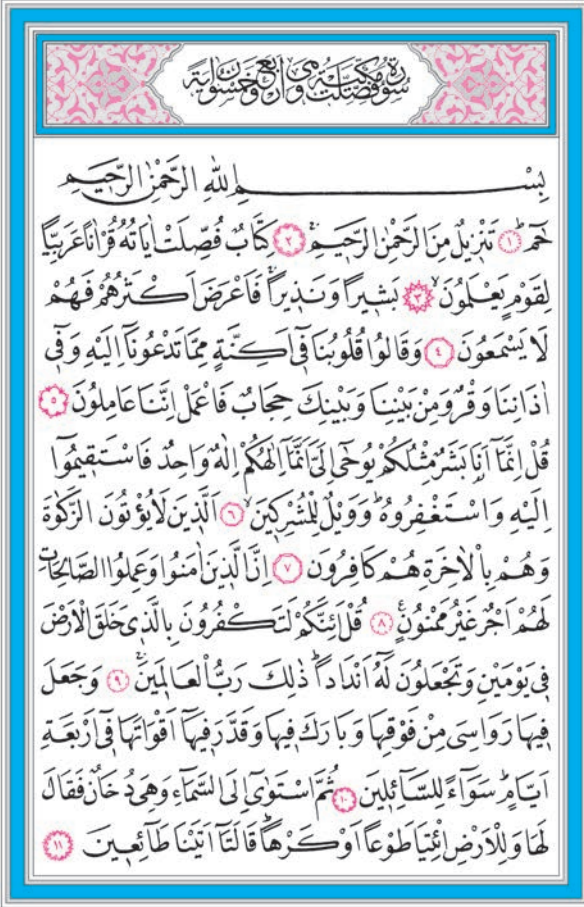 سورة فصلت مكية وهي اربع وخمسون اية
بِسْمِ اللهِ الرَّحْمٰنِ الرَّحِيمِ
حٰمٓ ﴿١﴾ تَنْزِيلٌ مِنَ الرَّحْمٰنِ الرَّحِيمِ ﴿٢﴾ كِتَابٌ فُصِّلَتْ اٰيَاتُهُ قُرْاٰنًا عَرَبِيًّا
لِقَوْمٍ يَعْلَمُونَ ﴿٣﴾ بَشِيرًا وَنَذِيرًا فَاَعْرَضَ اَكْثَرُهُمْ فَهُمْ
لَا يَسْمَعُونَ ﴿٤﴾ وَقَالُوا قُلُوبُنَا فِٓي اَكِنَّةٍ مِمَّا تَدْعُونَٓا اِلَيْهِ وَفِٓي
اٰذَانِنَا وَقْرٌ وَمِنْ بَيْنِنَا وَبَيْنِكَ حِجَابٌ فَاعْمَلْ اِنَّنَا عَامِلُونَ ﴿٥﴾
قُلْ اِنَّمَٓا اَنَا بَشَرٌ مِثْلُكُمْ يُوحٰٓى اِلَيَّ اَنَّمَٓا اِلٰهُكُمْ اِلٰهٌ وَاحِدٌ فَاسْتَقِيمُٓوا
اِلَيْهِ وَاسْتَغْفِرُوهُ وَوَيْلٌ لِلْمُشْرِكِينَ ﴿٦﴾ اَلَّذِينَ لَا يُؤْتُونَ الزَّكٰوةَ
وَهُمْ بِالْاٰخِرَةِ هُمْ كَافِرُونَ ﴿٧﴾ اِنَّ الَّذِينَ اٰمَنُوا وَعَمِلُوا الصَّالِحَاتِ
لَهُمْ اَجْرٌ غَيْرُ مَمْنُونٍ ﴿٨﴾ قُلْ اَئِنَّكُمْ لَتَكْفُرُونَ بِالَّذِي خَلَقَ الْاَرْضَ
فِي يَوْمَيْنِ وَتَجْعَلُونَ لَهُٓ اَنْدَادًا ذٰلِكَ رَبُّ الْعَالَمِينَ ﴿٩﴾ وَجَعَلَ
فِيهَا رَوَاسِيَ مِنْ فَوْقِهَا وَبَارَكَ فِيهَا وَقَدَّرَ فِيهَٓا اَقْوَاتَهَا فِٓي اَرْبَعَةِ
اَيَّامٍ سَوَٓاءً لِلسَّٓائِلِينَ ﴿١٠﴾ ثُمَّ اسْتَوٰٓى اِلَى السَّمَٓاءِ وَهِيَ دُخَانٌ فَقَالَ
لَهَا وَلِلْاَرْضِ ائْتِيَا طَوْعًا اَوْ كَرْهًا قَالَتَٓا اَتَيْنَا طَٓائِعِينَ ﴿١١﴾